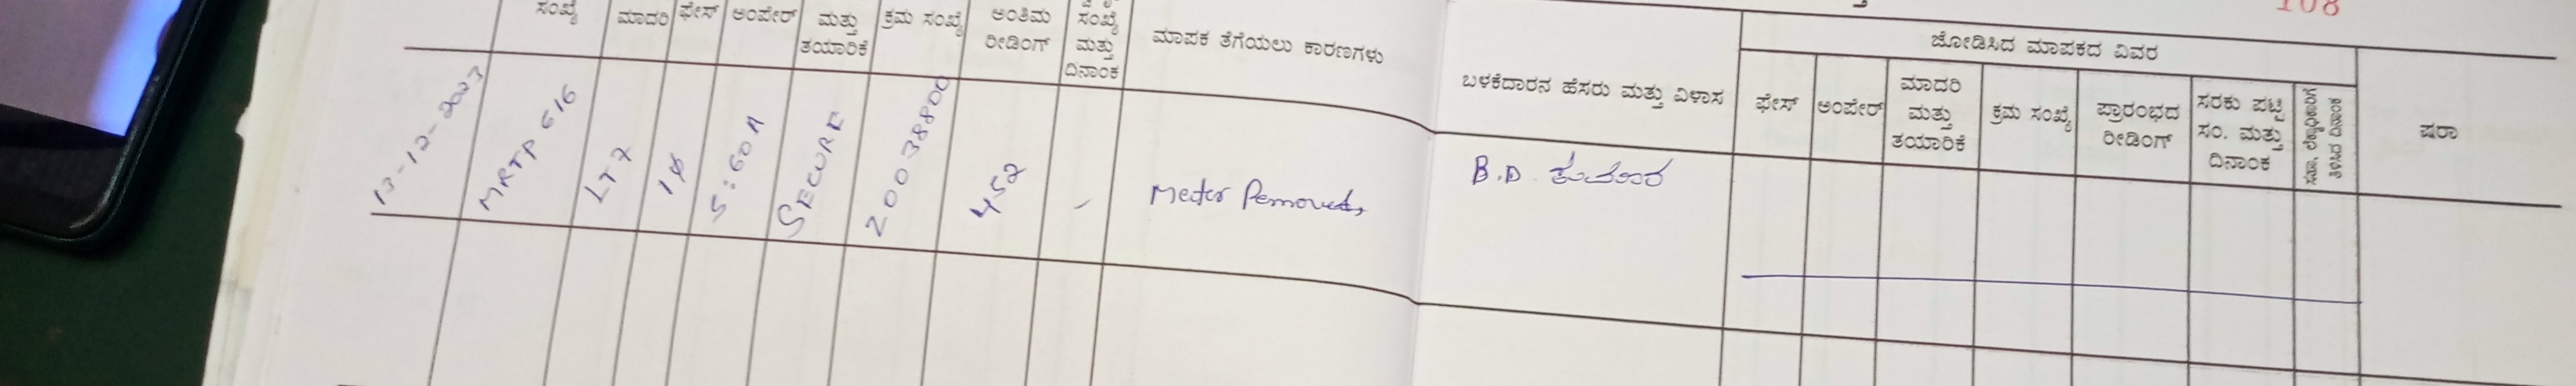 108
ಸಂಖ್ಯೆ ಮಾದರಿ ಫೇಸ್ ಅಂಪೇರ್ ಮತ್ತು ತಯಾರಿಕೆ ಕ್ರಮ ಸಂಖ್ಯೆ ಅಂತಿಮ ರೀಡಿಂಗ್ ಸಂಖ್ಯೆ ಮತ್ತು ದಿನಾಂಕ ಮಾಪಕ ತೆಗೆಯಲು ಕಾರಣಗಳು
ಬಳಕೆದಾರನ ಹೆಸರು ಮತ್ತು ವಿಳಾಸ
ಜೋಡಿಸಿದ ಮಾಪಕದ ವಿವರ
ಫೇಸ್ ಅಂಪೇರ್ ಮಾದರಿ ಮತ್ತು ತಯಾರಿಕೆ ಕ್ರಮ ಸಂಖ್ಯೆ ಪ್ರಾರಂಭದ ರೀಡಿಂಗ್ ಸರಕು ಪಟ್ಟಿ ಸಂ. ಮತ್ತು ದಿನಾಂಕ ತಿಳಿಸಿದ ದಿನಾಂಕ
ಷರಾ
13-12-2023 MRTP 616 LT7 1φ 5:60A SECURE 200038800 457 - Meter Removed,
B.D. ಕುಮಾರ